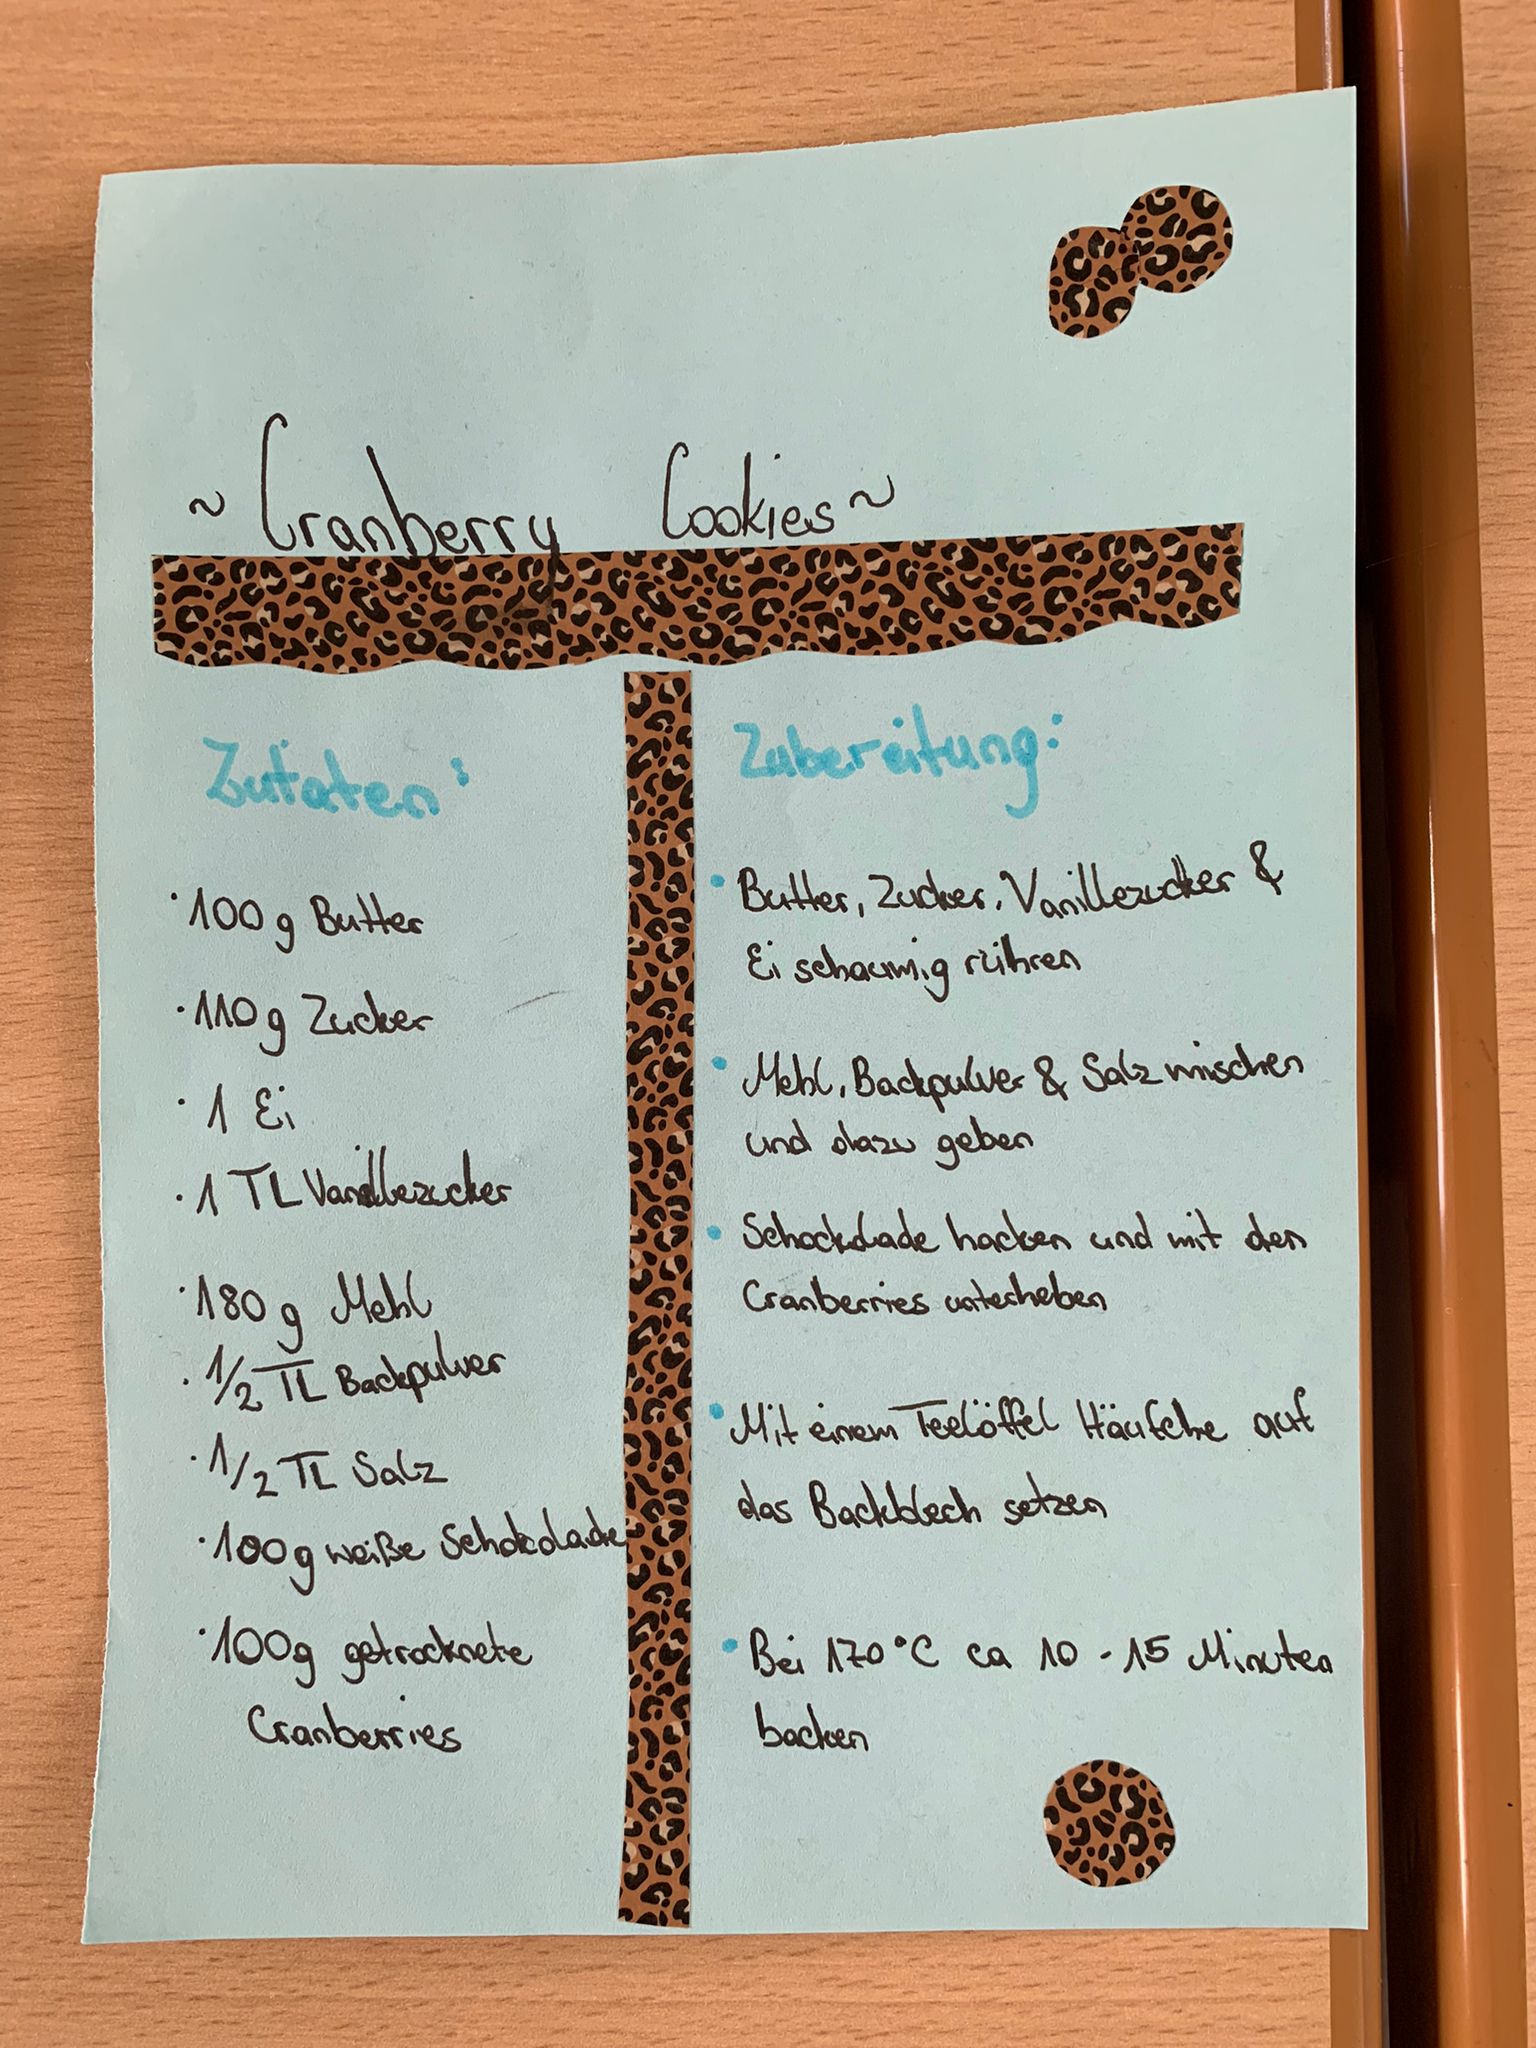 ~ Cranberry Cookies ~
Zutaten:
· 100 g Butter
· 110 g Zucker
· 1 Ei
· 1 TL Vanillezucker
· 180 g Mehl
· 1/2 TL Backpulver
· 1/2 TL Salz
· 100g weiße Schokolade
· 100g getrocknete
Cranberries
Zubereitung:
• Butter, Zucker, Vanillezucker &
Ei schaumig rühren
• Mehl, Backpulver & Salz mischen
und dazu geben
• Schockolade hacken und mit den
Cranberries unterheben
• Mit einem Teelöffel Häufche auf
das Backblech setzen
• Bei 170°C ca 10 - 15 Minuten
backen